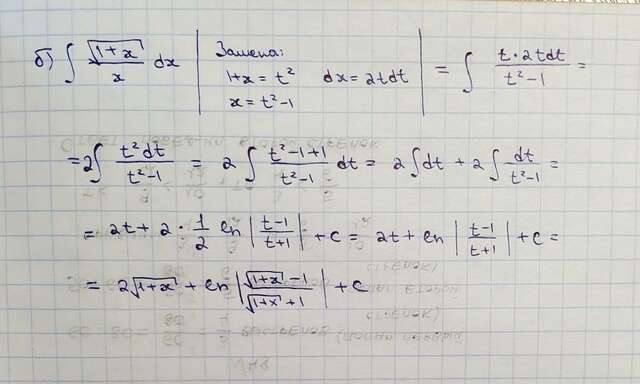 б) ∫ √(1+x)/x dx | Замена: 1+x = t² dx = 2tdt x = t²-1 | = ∫ t·2tdt/(t²-1) =
= 2∫ t²dt/(t²-1) = 2∫ (t²-1+1)/(t²-1) dt = 2∫dt + 2∫ dt/(t²-1) =
= 2t + 2·1/2 ln|(t-1)/(t+1)| + c = 2t + ln|(t-1)/(t+1)| + c =
= 2√(1+x) + ln|(√(1+x) -1)/(√(1+x) +1)| + c